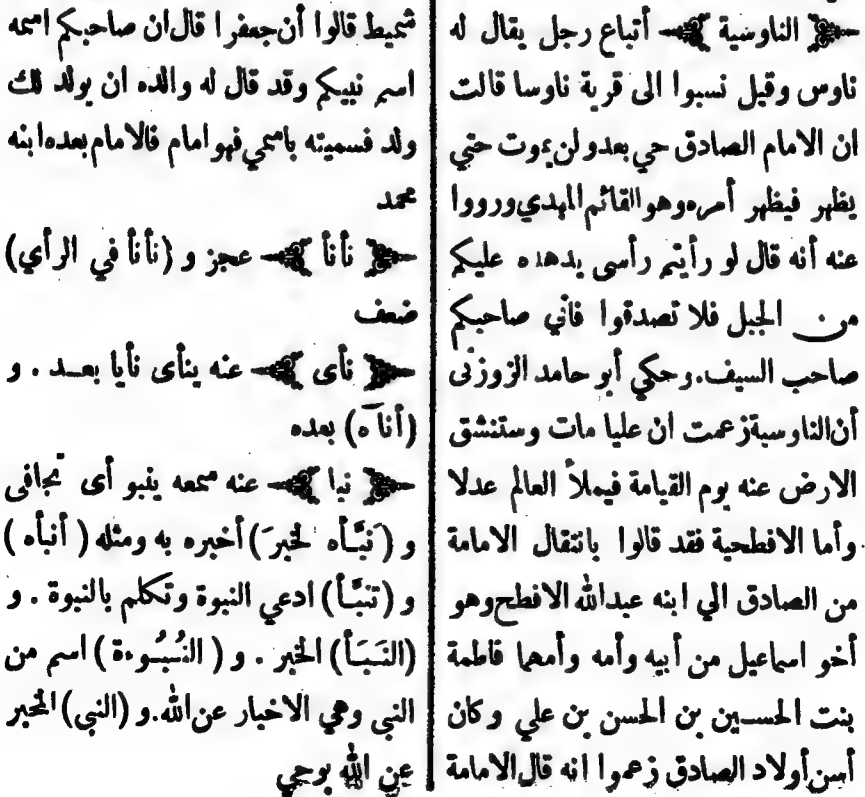 الناوسية أتباع رجل يقال له
ناوس وقيل نسبوا الى قرية ناوسا قالت
ان الامام الصادق حي بعد ولن يموت حتي
يظهر فيظهر أمره وهو القائم المهدي ورووا
عنه أنه قال لو رأيتم رأسى يدهده عليكم
من الجبل فلا تصدقوا فاني صاحبكم
صاحب السيف. وحكي أبو حامد الزوزنى
أن الناوسية زعمت ان عليا مات وستنشق
الارض عنه يوم القيامة فيملأ العالم عدلا
وأما الافطحية فقد قالوا بانتقال الامامة
من الصادق الي ابنه عبدالله الافطح وهو
أخو اسماعيل من أبيه وأمه وأمهما فاطمة
بنت الحسين بن الحسن بن علي وكان
أسن أولاد الصادق زعموا انه قال الامامة
شميط قالوا أن جعفرا قال ان صاحبكم اسمه
اسم نبيكم وقد قال له والده ان يولد لك
ولد فسميته باسمي فهو امام فالامام بعده ابنه
محمد
نأنأ عجز و (نأنأ في الرأي)
ضعف
نأى عنه ينأى نأيا بعد . و
(أنآه) بعده
نبا عنه سمعه ينبو أى تجافى
و (نَبَّأه لخبرَ) أخبره به ومثله ( أنبأه )
و (تنبَّأ) ادعي النبوة وتكلم بالنبوة . و
(النَبَأ) الخبر . و ( النُبُوءة ) اسم من
النبى وهي الاخبار عن الله. و (النبي) المخبر
عن الله بوحي